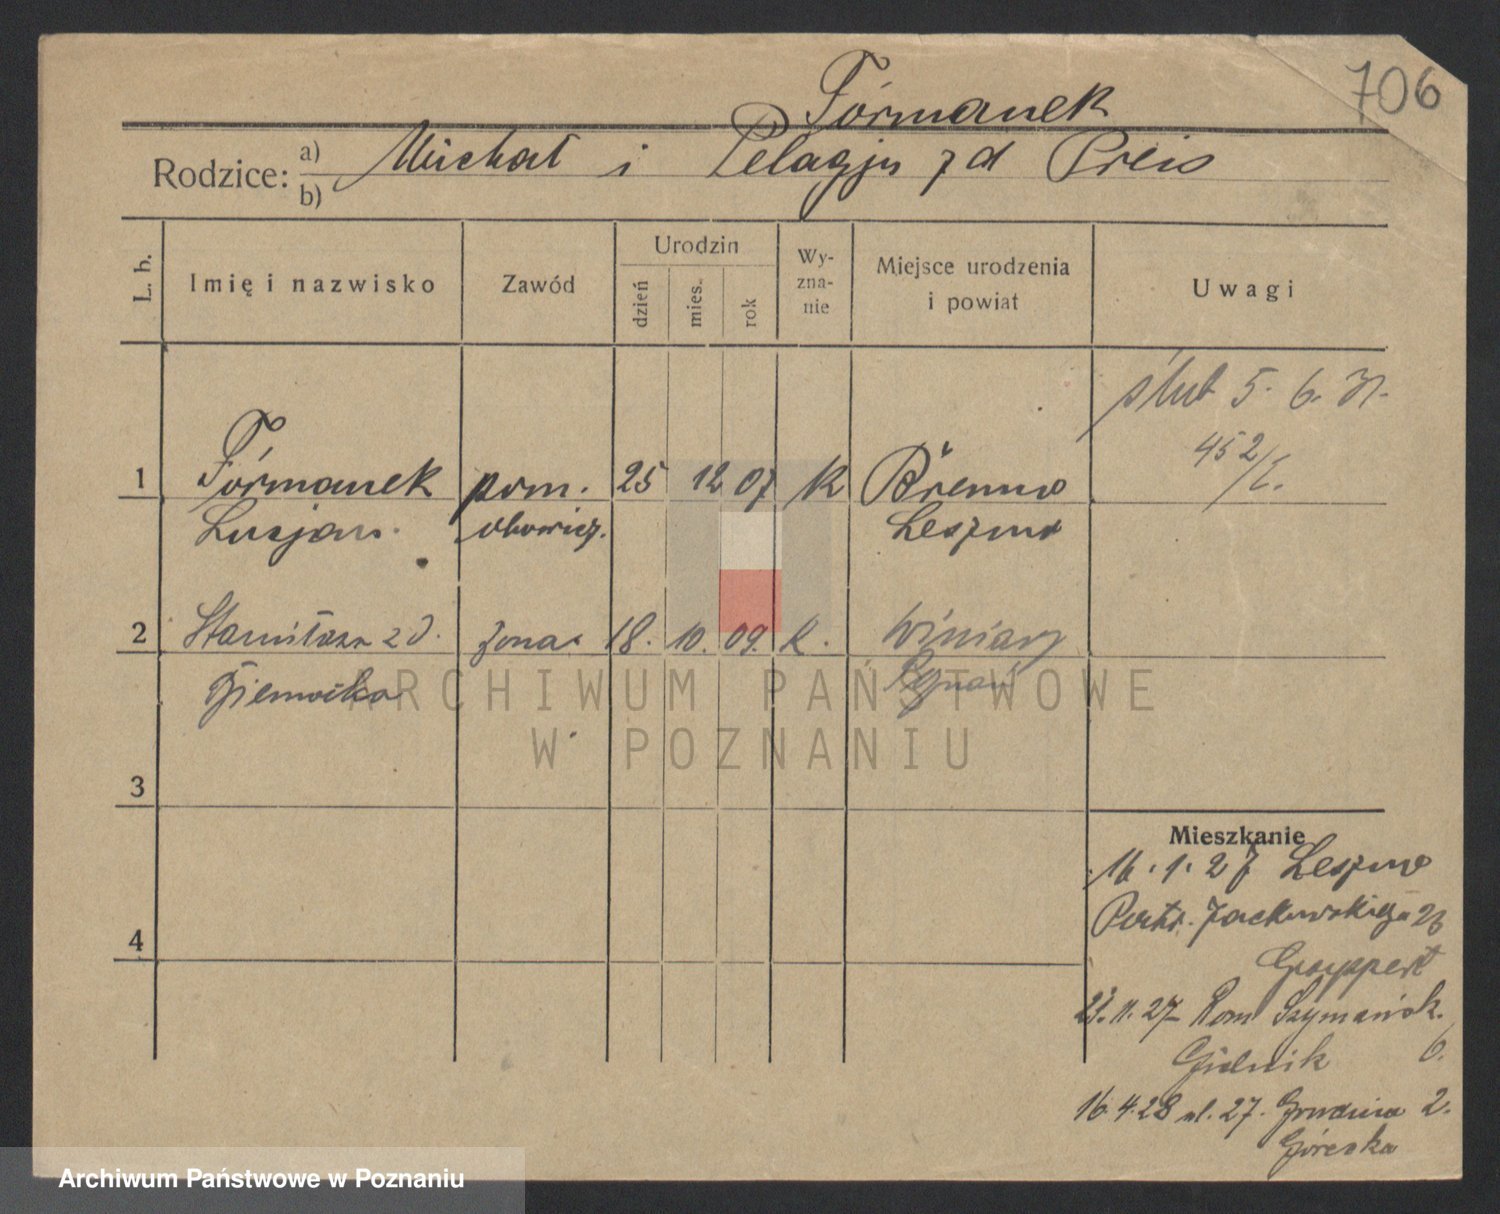 706
Fórmanek
Rodzice: a) b) Michał i Pelagja zd Preis
L. b.
Imię i nazwisko
Zawód
Urodzin
dzień
mies.
rok
Wy-
zna-
nie
Miejsce urodzenia
i powiat
Uwagi
ślub 5. 6. 31.
452/I.
1 Fórmanek pom. 25 12 07 K Brenno
Lucjan. obowiąz. Leszno
2 Stanisława zd. żona 18. 10. 09. k. Winiary
Poznań
3
4
Mieszkanie
16.1.27 Leszno
Jackowskiego 26
23.11.27 Rom Szymańsk.
6.
16.4.28 ul. 27. Grudnia 2.
Górecka
ARCHIWUM PAŃSTWOWE
W POZNANIU
Archiwum Państwowe w Poznaniu